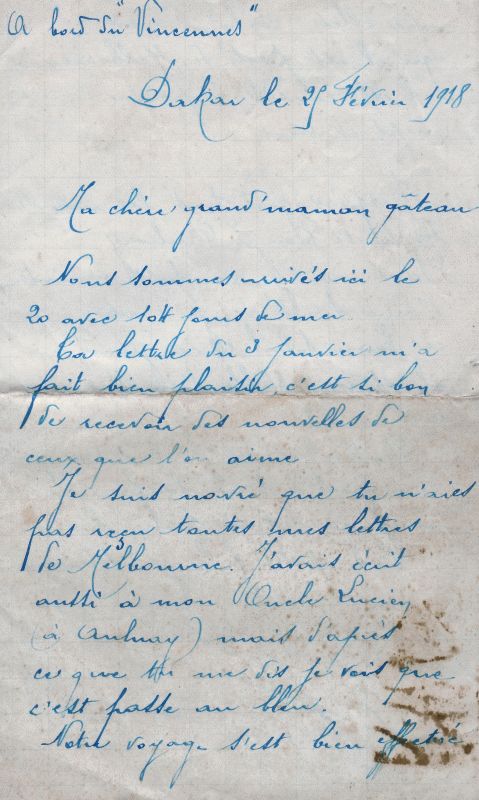 A bord du "Vincennes"
Dakar le 25 Février 1918
Ma chère grand'maman gâteau
Nous sommes arrivés ici le
20 avec jours de mer
Ta lettre du 3 Janvier m'a
fait bien plaisir, c'est si bon
de recevoir des nouvelles de
ceux que l'on aime
Je suis navré que tu n'aies
pas reçu toutes mes lettres
de Melbourne. J'avais écrit
aussi à mon Oncle Lucien
(à Aulnay) mais d'après
ce que tu me dis je vois que
c'est passé au bleu.
Notre voyage s'est bien effectué